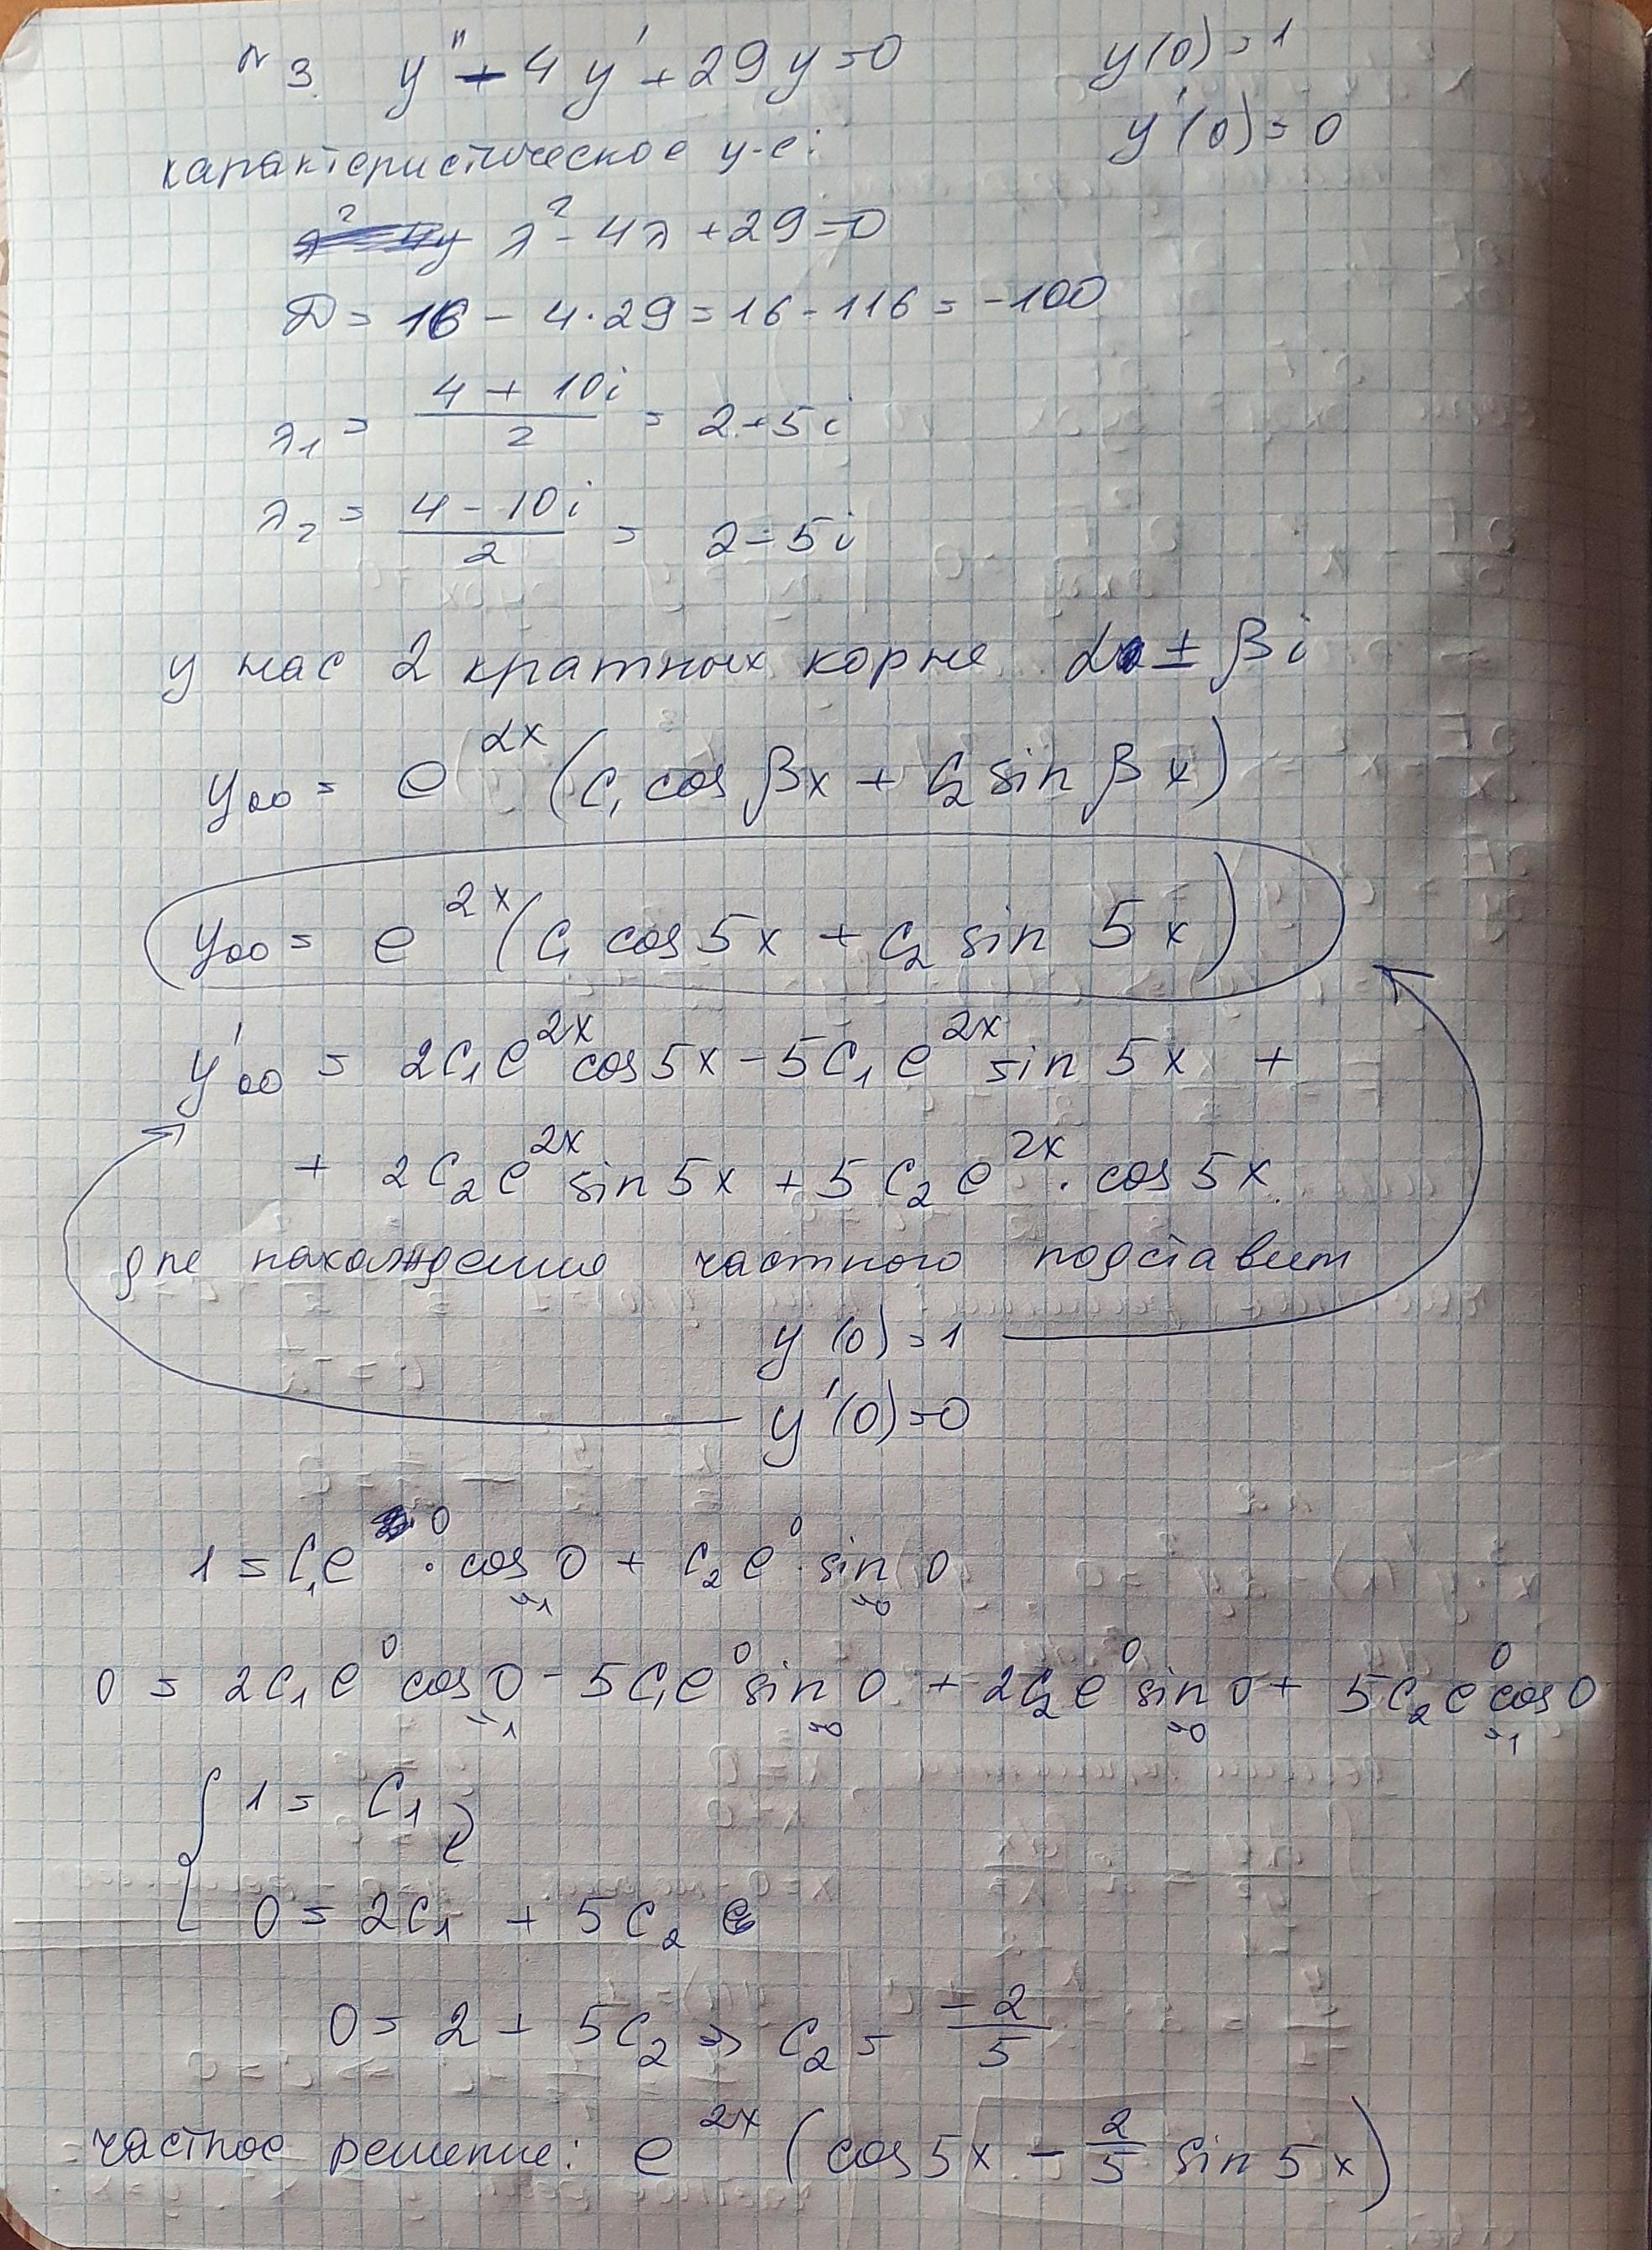 N 3. y'' - 4y' + 29y = 0 y(0) = 1
y'(0) = 0
характеристическое у-е:
λ² - 4λ + 29 = 0
D = 16 - 4·29 = 16 - 116 = -100
λ₁ = (4 + 10i)/2 = 2+5i
λ₂ = (4 - 10i)/2 = 2-5i
у нас 2 кратных корня α ± βi
yоо = e^(αx) (C₁ cos βx + C₂ sin βx)
yоо = e^(2x) (C₁ cos 5x + C₂ sin 5x)
y'оо = 2C₁e^(2x) cos 5x - 5C₁e^(2x) sin 5x +
+ 2C₂e^(2x) sin 5x + 5C₂e^(2x) · cos 5x
для нахождения частного подставим
y(0) = 1
y'(0) = 0
1 = C₁e⁰ · cos 0 + C₂e⁰ · sin 0
=1 =0
0 = 2C₁e⁰ cos 0 - 5C₁e⁰ sin 0 + 2C₂e⁰ sin 0 + 5C₂e⁰ cos 0
=1 =0 =0 =1
{ 1 = C₁
0 = 2C₁ + 5C₂
0 = 2 + 5C₂ => C₂ = -2/5
частное решение: e^(2x) (cos 5x - 2/5 sin 5x)